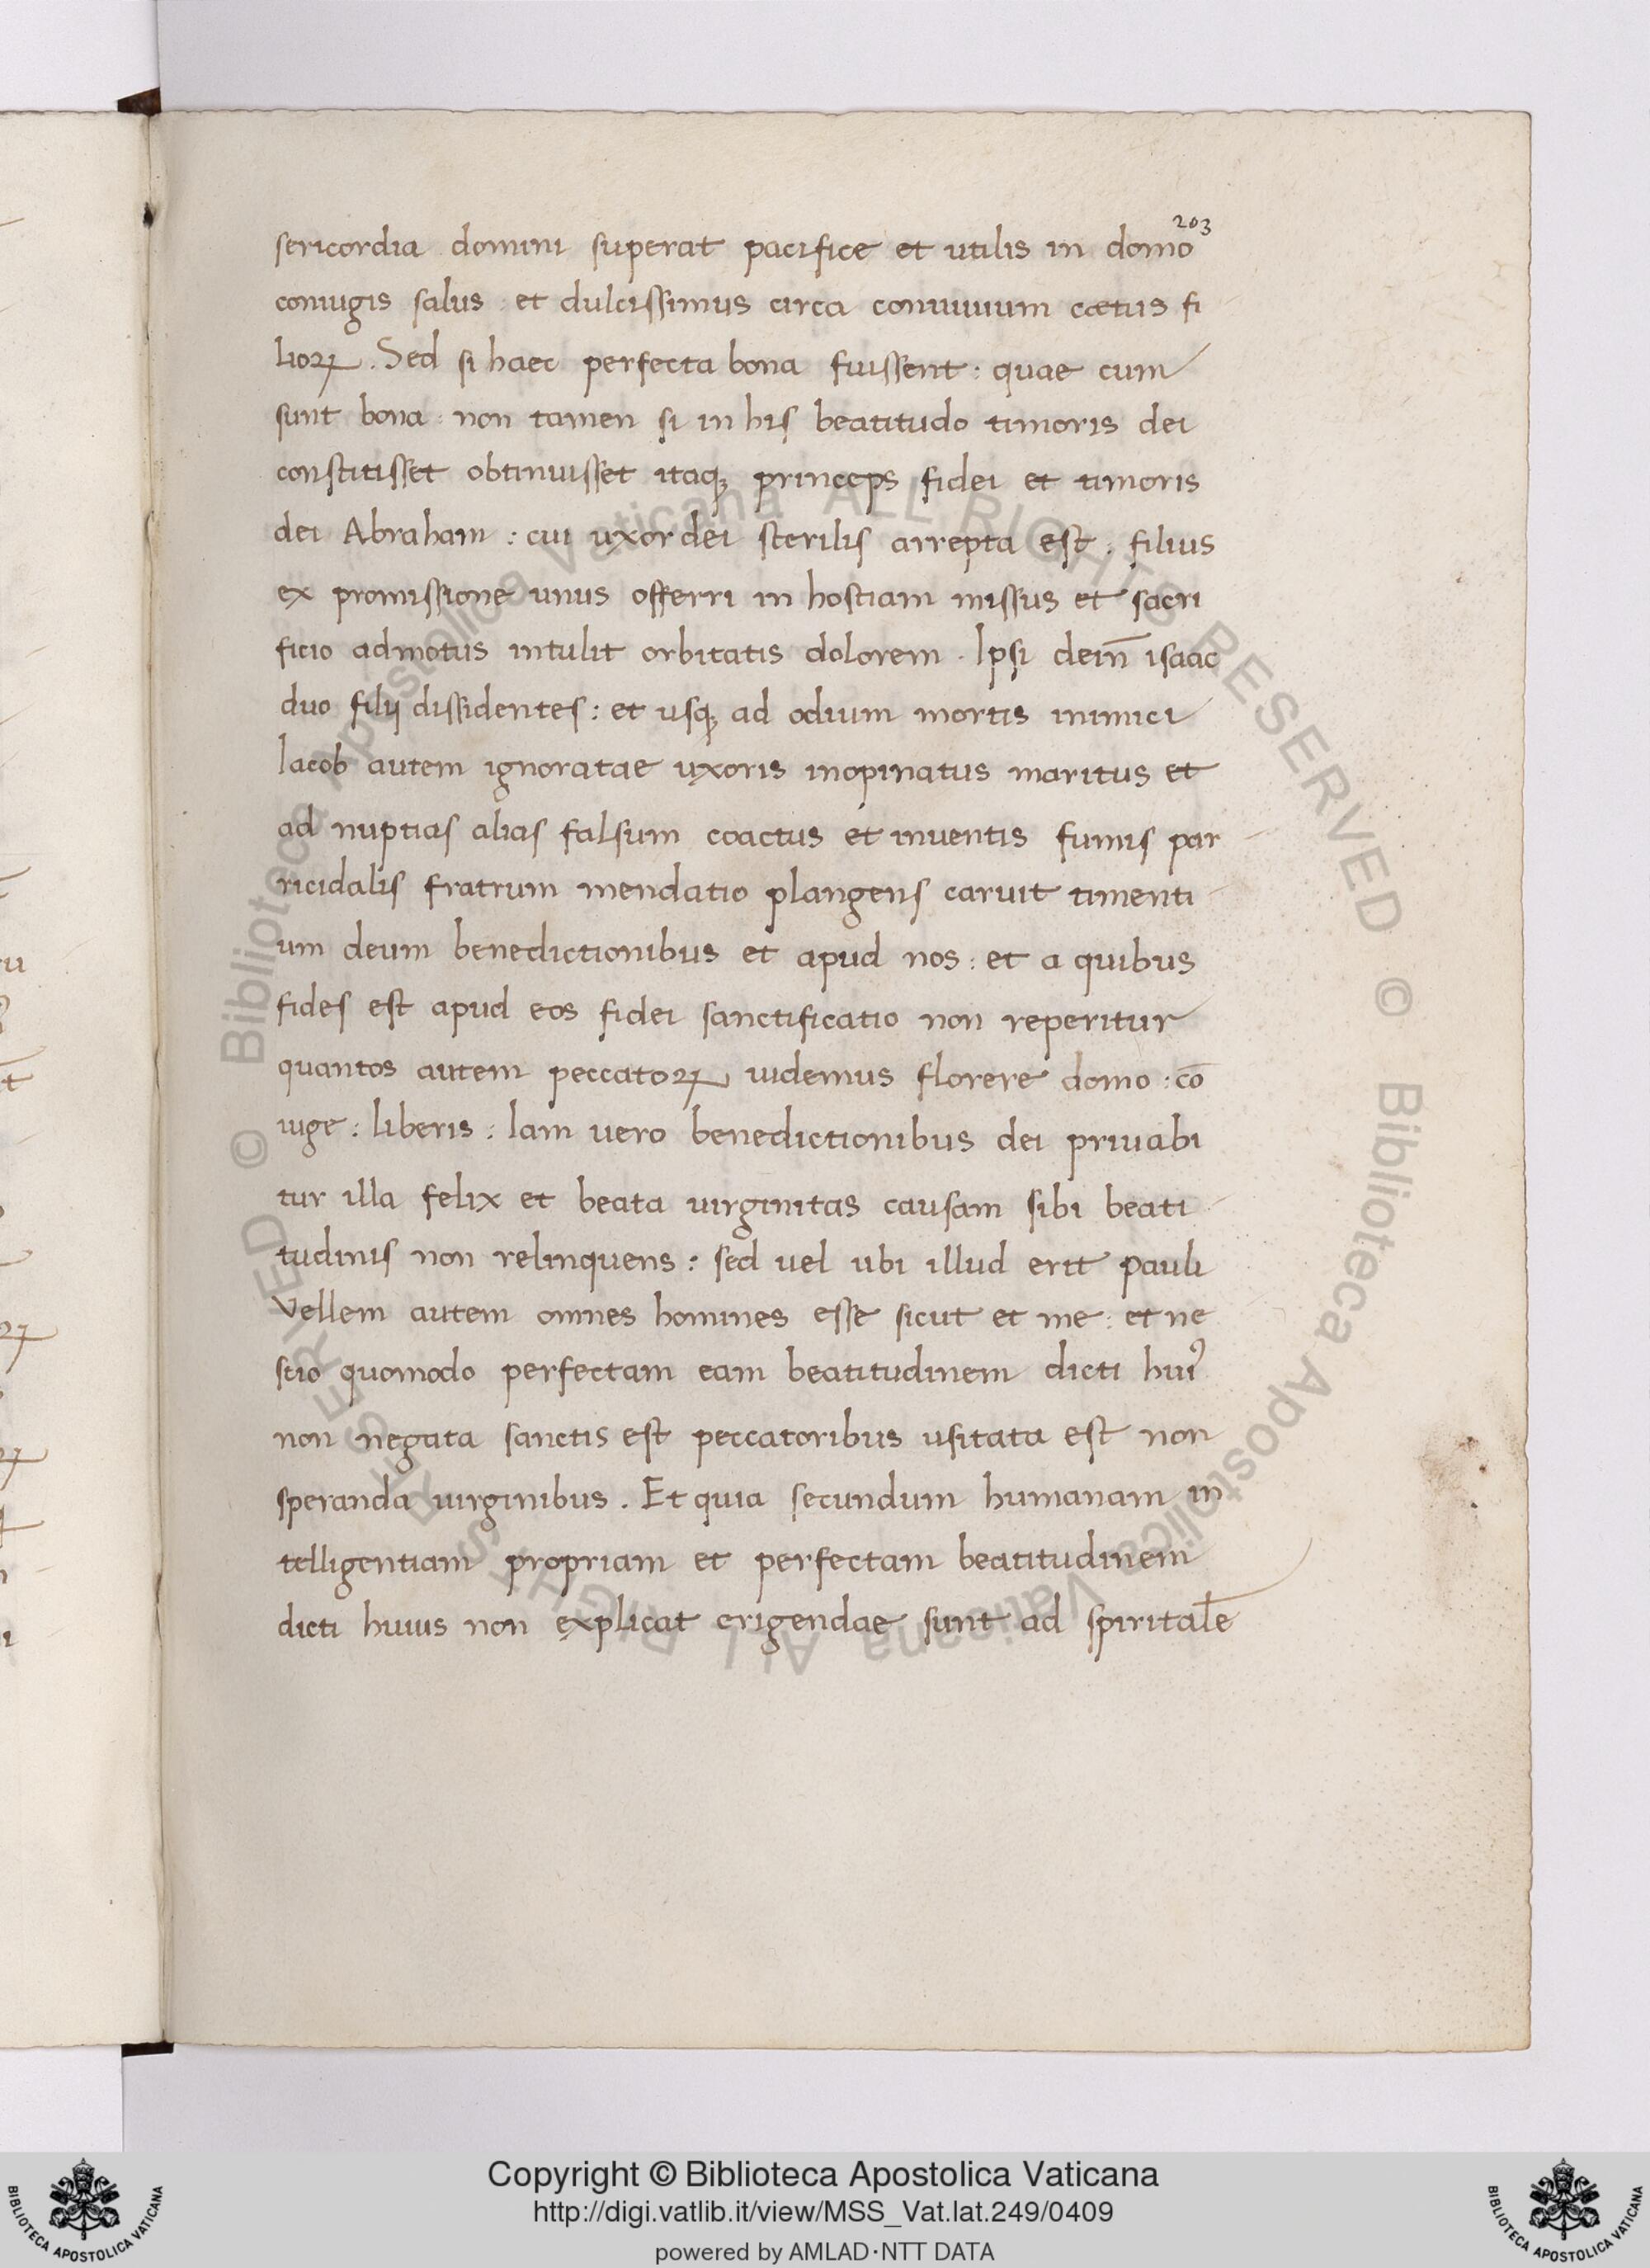 203
sericordia domini superat pacifice et utilis in domo
coniugis salus : et dulcissimus circa conuiuium cœtus fi
lioꝝ . Sed si haec perfecta bona fuissent : quae cum
sunt bona : non tamen si in his beatitudo timoris dei
constitisset obtinuisset itaqꝫ princeps fidei et timoris
dei Abraham : cui uxor dei sterilis arrepta est . filius
ex promissione unus offerri in hostiam missus et sacri
ficio admotus intulit orbitatis dolorem . Ipsi dein̄ isaac
duo filij dissidentes : et usqꝫ ad odium mortis inimici
Iacob autem ignoratae uxoris inopinatus maritus et
ad nuptias alias falsum coactus et inuentis fumis par
ricidalis fratrum mendatio plangens caruit timenti
um deum benedictionibus et apud nos : et a quibus
fides est apud eos fidei sanctificatio non reperitur
quantos autem peccatoꝝ uidemus florere domo : cō
iuge : liberis : Iam uero benedictionibus dei priuabi
tur illa felix et beata uirginitas causam sibi beati
tudinis non relinquens : sed uel ubi illud erit pauli
Vellem autem omnes homines esse sicut et me : et ne
scio quomodo perfectam eam beatitudinem dicti huiꝰ
non negata sanctis est peccatoribus usitata est non
speranda uirginibus . Et quia secundum humanam in
telligentiam propriam et perfectam beatitudinem
dicti huius non explicat erigendae sunt ad spiritalē
© Biblioteca Apostolica Vaticana ALL RIGHTS RESERVED © Biblioteca Apostolica Vaticana ALL RIGHTS RESERVED
Copyright © Biblioteca Apostolica Vaticana
http://digi.vatlib.it/view/MSS_Vat.lat.249/0409
powered by AMLAD·NTT DATA
BIBLIOTECA APOSTOLICA VATICANA
BIBLIOTECA APOSTOLICA VATICANA